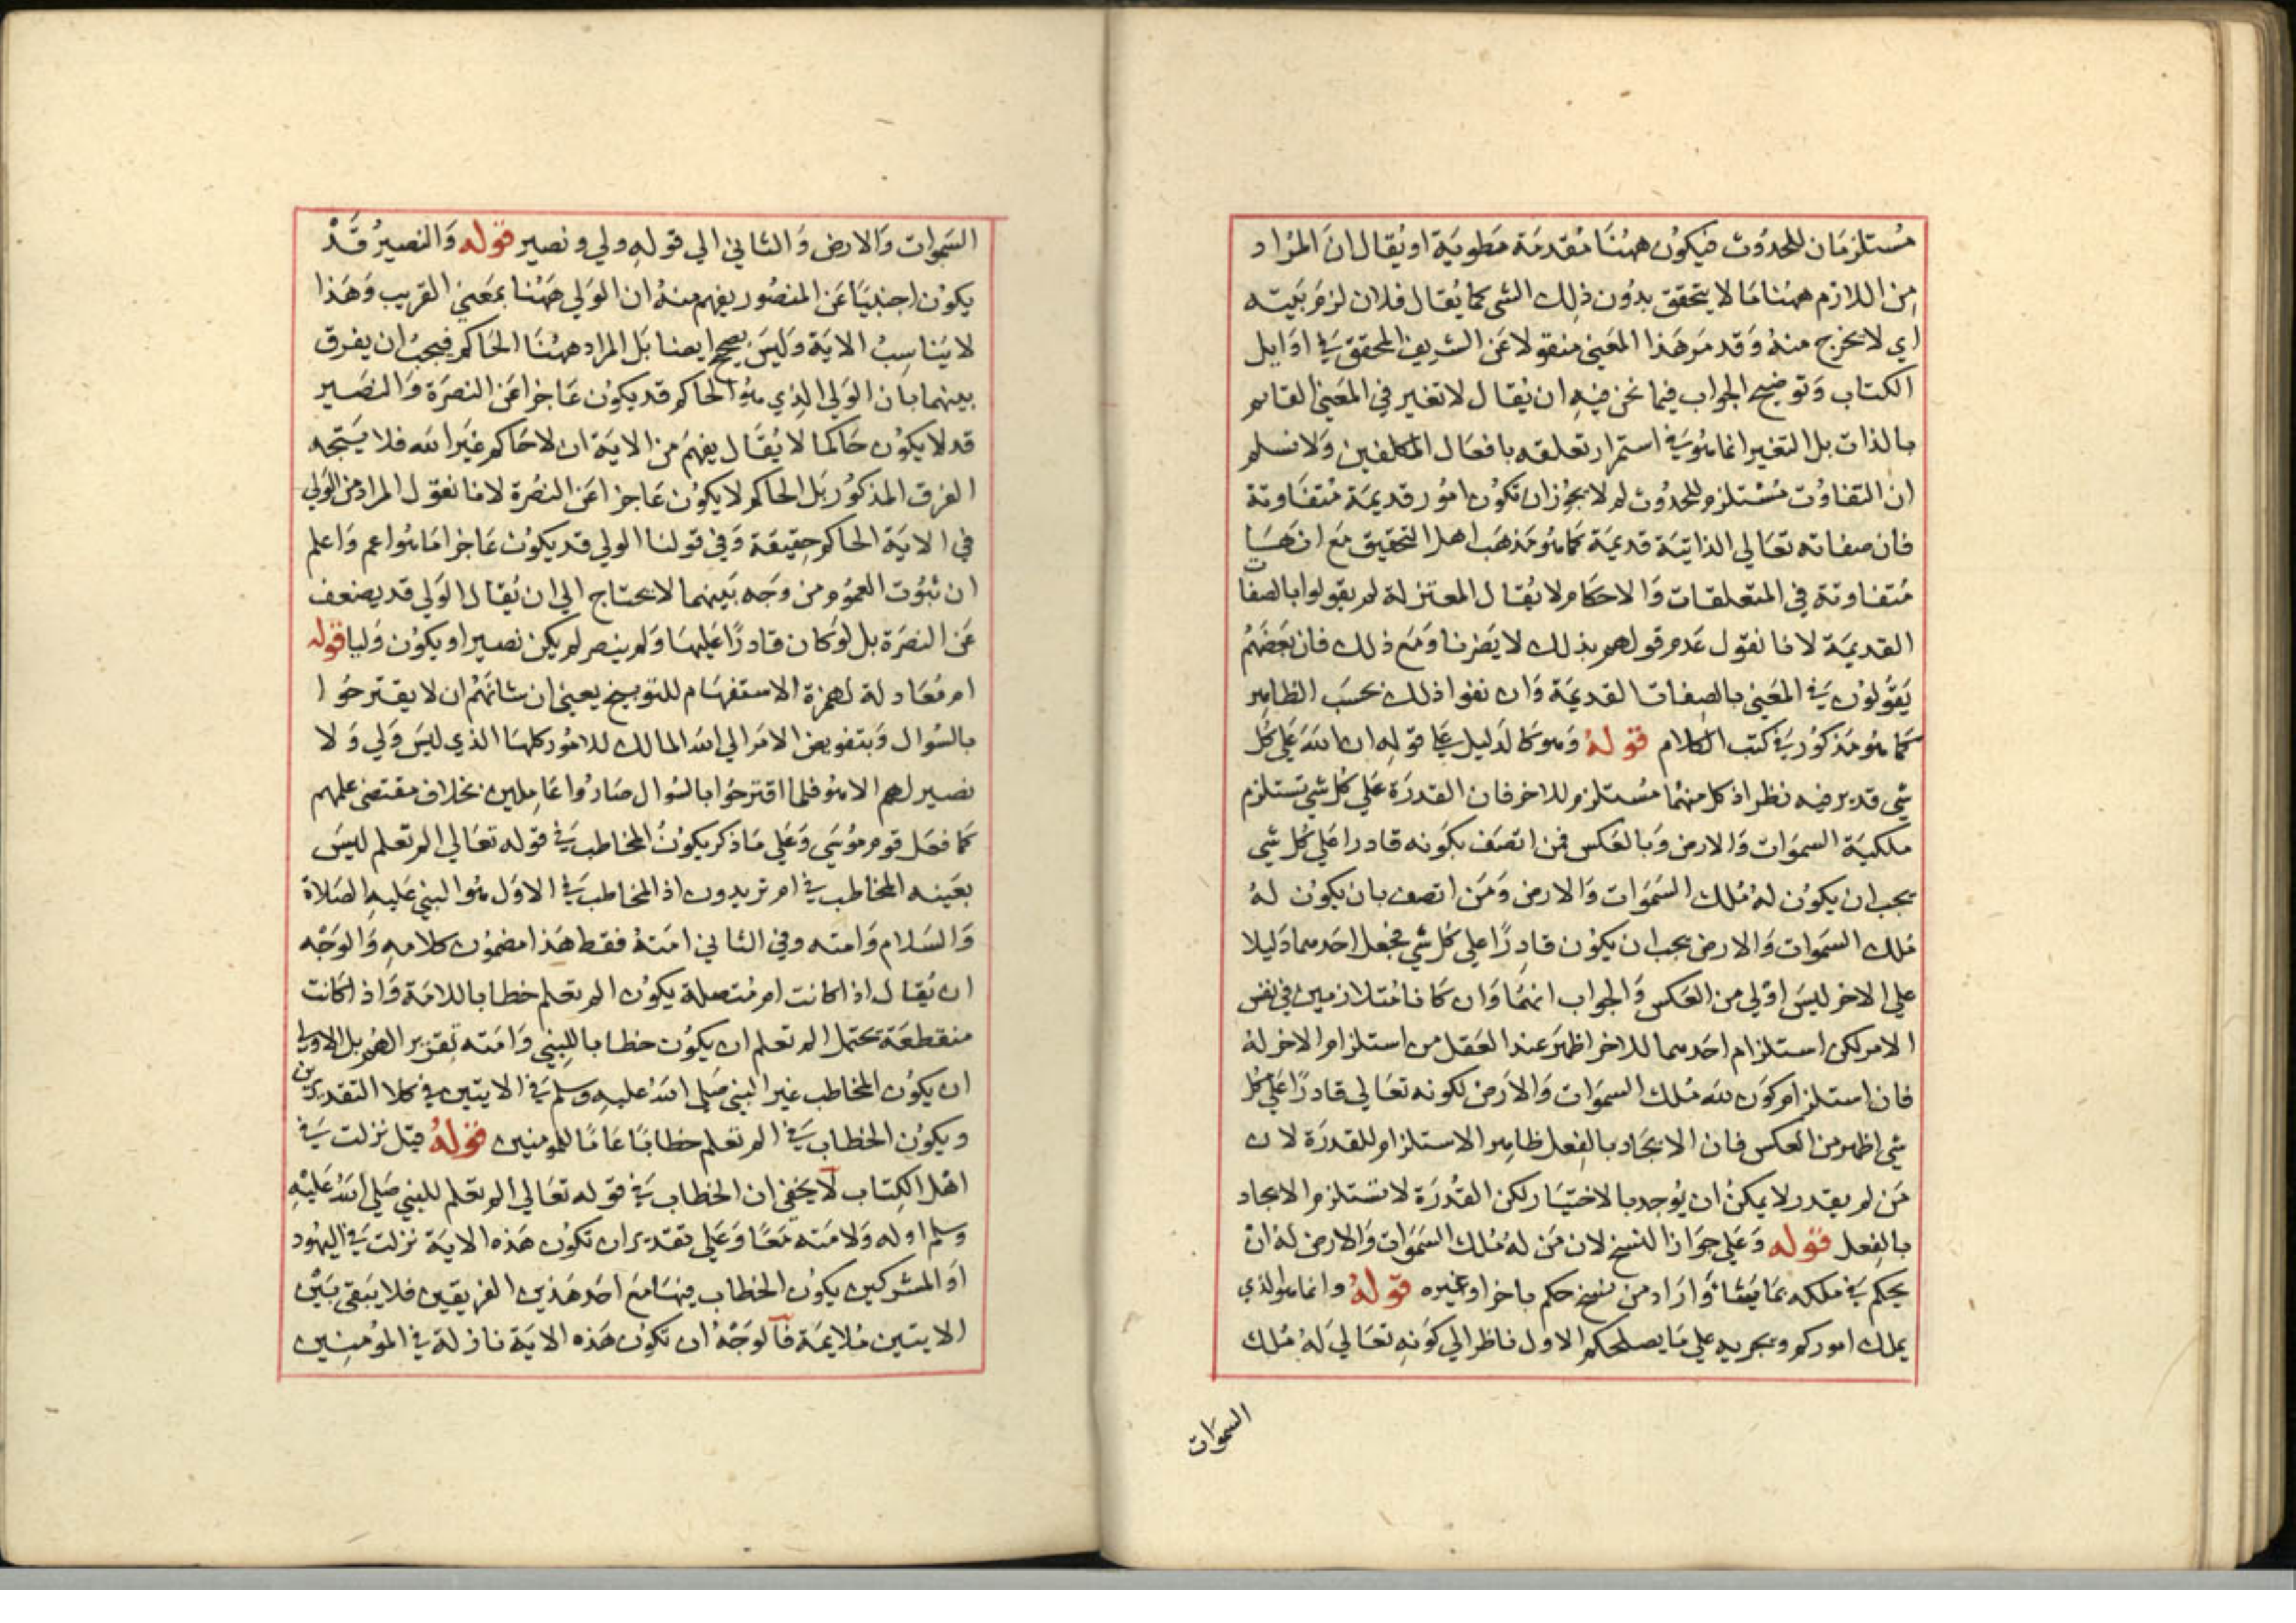 مُستلزمَان للحدوث فيكون ههُنَا مُقدمَة مَطوية او يُقال ان المُراد
من اللازم ههُنَا مَا لا يتحقق بدُون ذلِك الشى كما يُقال فلان لزمَ بَيته
اي لا يخرج منهُ وَقد مَر هَذا المعَني منقولا عَن الشريف المحقق في اوَايل
الكتاب وَتوضيح الجواب فيما نحن فيهِ ان يُقال لا تغير في المعَني القايم
بالذات بل التغير انما هُو في استمرار تعلقه بافعَال المكلفين وَلا نسلم
ان التفاوُت مُستلزم للحدُوث لم لا يجوُزان تكوُن امُور قديمَة مُتفَاوتة
فان صفاته تعَالي الذاتيَة قديمَة كمَا هُو مَذهَب اهل التحقيق مَع انهَا
مُتفاوتة في المتعلقات وَالاحكَام ولا يُقال المعتزلة لم يقولوا بالصفات
القديمَة لانا نقول عَدم قولهم بذلك لا يَضرنا وَمَع ذلك فان بَعضَهُم
يَقوُلوُن في المعَني بالصفات القديمَة وَان نفوا ذلك بحسَب الظاهِر
كمَا هُو مَذكوُر في كتب الكلام قولهُ وَهو كالدَليل على قوله ان اللهَ عَلي كُل
شي قدير فيه نظر اذ كل منهُما مُستلزم للاخر فان القدرَة عَلي كُل شي تستلزم
ملكيَة السموَات وَالارض وَبالعَكس فمن اتصَف بكَونه قادرا عَلي كُل شي
يجب ان يكوُن لهُ مُلك السَمَوَات وَالارض وَمَن اتصف بان يكوُن لهُ
مُلك السمَوات وَالارض يجب ان يكوُن قادِرًا علي كل شي فجعل احَدهما دَليلا
علي الاخر ليسَ اوْلي من العَكس وَالجواب انهُما وَان كانا مُتلازمين في نفس
الامر لكن استلزام احَدهما للاخر اظهرَ عند العَقل من استلزام الاخر لهُ
فان استلزام كوَن لله مُلك السموَات وَالاَرض لكونه تعَالي قادرًا عَلي كُل
شي اظهر من العكس فان الايجَاد بالفِعل ظاهِر الاستلزام للقدرَة لان
مَن لم يقدر لا يمكنُ ان يُوجد بالاختيَار لكن القُدرَة لا تستلزم الايجاد
بالفِعل قوله وَعَلي جوَاز النسخ لان مَن لهُ مُلك السَمَوَات وَالارض لهُ ان
يحكم في ملكه بمَا يَشا وَارَاد من نسخ حكم باخر او غيره قولهُ وانما هو الذي
يملك اموركم ويجريه علي مَا يصلحكم الاول ناظر الي كَونهِ تعَالي لهُ مُلك
السموَات
السَموات وَالارض وَالثاني الي قولهِ ولي ونصير قوله وَالنصيرُ قدْ
يكوُن اجنبيَا عَن المنصُور يفهم منهُ ان الوَلي ههُنا بمعَني القريب وَهَذا
لا يُناسِبُ الايَة وَليسَ بصحيح ايضا بَل المراد ههُنَا الحَاكم فيجبُ ان يفرق
بينهما بان الوَلي الذِي هُو الحاكم قد يكوُن عَاجزا عَن النصرَة وَالنصَير
قد لا يكوُن حَاكما لا يُقَال يفهَم من الايَة ان لا حَاكم غيَر الله فلا يَتجه
الفرق المذكوُر بَل الحاكم لا يكوُن عَاجزا عَن النصُرة لانا نقوُل المراد من الوَلي
في الايَة الحاكم حقيقة وَفي قولنا الولي قد يكوُن عَاجزا مَا هُو اعم وَاعلم
ان ثبُوت العموُم من وَجه بَينهما لا يحتاج الي ان يُقال الوَلي قد يضعف
عَن النصرَة بل لوَ كان قادرًا عَليهَا وَلم ينصر لم يكن نصيرا ويكوُن وَليا قوله
ام مُعَادلة لهمزة الاستفهَام للتوبيخ يعني ان شانَهُم ان لا يقترحُوا
بالسُوال وَبتفويض الامَر الي الله المالك للامُور كلهَا الذي ليسَ وَلي وَلا
نصير لهم الا هُو فلما اقترحُوا بالسُوال صَارُوا عَامِلين بخلاف مقتضى علمهم
كمَا فعَل قوم مُوسَي وَعَلي مَا ذكر يكوُنُ المخاطب في قوله تعَالي الم تعلم ليسَ
بعَينه المخاطب في ام تريدون اذ المخاطب في الاوَل هُو النبي عَليهِ الصَلاة
وَالسَلام وَامته وفي الثاني امَتهُ فقط هَذا مضموُن كلامهِ وَالوَجْه
ان يُقال اذا كانت ام مُتصلة يكوُن الم تعلم خطابا للامَة وَاذا كانت
منقطعَة يحتمل الم تعلم ان يكوُن خطابا للنبي وَامَته تقرير الهُم بل الاولى
ان يكوُن المخاطب غير النبي صَلي اللهُ عليهِ وسلم في الايتين في كلا التقديرين
ويكوُن الخطاب في الم تعلم خطابًا عَامًا للمومنين قولهُ قيل نزلت في
اهْل الكِتاب لا يخفي ان الخطاب في قوله تعَالي الم تعلم للنبي صَلي اللهُ عَليْهِ
وسلم او له وَلامَته مَعًا وَعَلي تقدير ان تكوُن هَذه الايَة نزلت في اليهُود
اوَ المشركين يكوُن الخطاب فيهَا مَع احَد هَذين الفريقين فلا يَبقي بَيْن
الايتين مُلايمَة فالوَجَهُ ان تكوُن هَذه الايَة نازلة في الموُمنِين